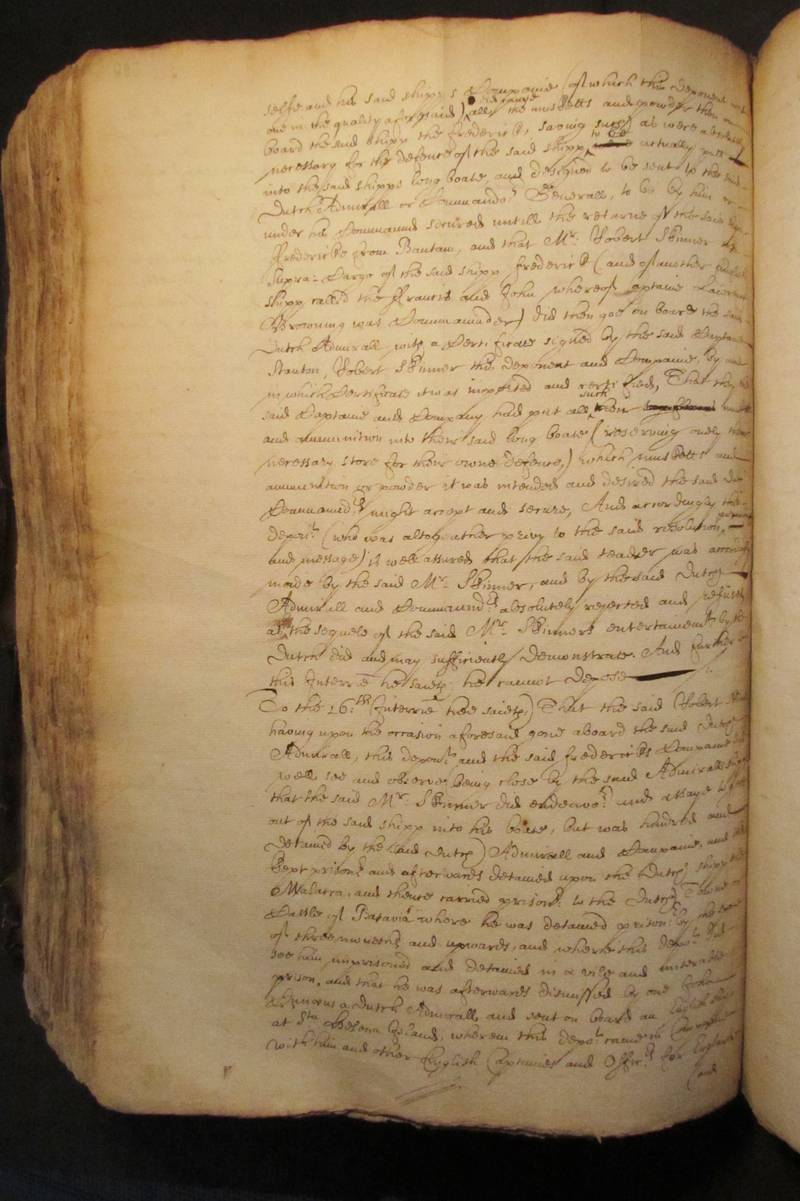 selfe and his said shipp's Companie (of which this deponent was
one in the quality aforesaid) did range all the musketts and powder then on
board the said shipp the Frederick, saving such as were absolutely
necessary for the defence of the said shipp, to be actually putt
into the said shipps long boate and designed to be sent to the said
Dutch Admirall or Commando:r Generall, to be by him or
under his Command secured untill the returne of the said shipp
Frederick from Bantam, and that Mr. Robert Skinner
Supra-Cargo of the said shipp Frederick (and of another English
shipp called the Francis and John whereof Captaine Lawrence
Browning was Commander) did then goe on board the said
Dutch Admirall with a Certificate signed by the said Captaine
Stanton, Robert Skinner this deponent and Companie, by and
in which Certificate it was imported and certified, That they the
said Captaine and Company had putt all such their
and ammunition into their said long boate (reserving onely their
necessary store for their owne defence,) which musketts and
ammunition or powder it was intended and desired the said Dutch
Command:r might accept and secure, And accordingly the
depon:t (who was altogeather privy to the said resolution,
and message) is well assured that the said tender was accordingly
made by the said Mr. Skinner, and by the said Dutch
Admirall and Command:r absolutely rejected and refused
as the sequele of the said Mr. Skinners entertainem:t by the
Dutch did and may sufficiently demonstrate. And further to
this Interrie he saith he cannot depose
To the 26:th Interrie hee saith, That the said Robert Skinner
having upon the occasion aforesaid gone aboard the said Dutch
Admirall, this depon:t and the said Fredericks Companie did
well see and observe, being close by the said Admiralls shipp
that the said Mr. Skinner did endeavo:r and assaye to gett
out of the said shipp into his boate, but was hindred and
detained by the said Dutch Admirall and Companie, and
kept prison:r and afterwards detained upon the Dutch shipp the
Walatra, and thence carried prison:r to the Dutch
Castle of Batavia where he was detained prison:r by the space
of three moneths and upwards, and where this depon:t did
see him imprisoned and detained in a vile and miserable
prison, and that he was afterwards dismissed by one
a Dutch Admirall and sent on board an English shipp
at S:ta Helena Island, wherein this depon:t came in Companie
with him and other English Captaines and Offic:rs for England
(and